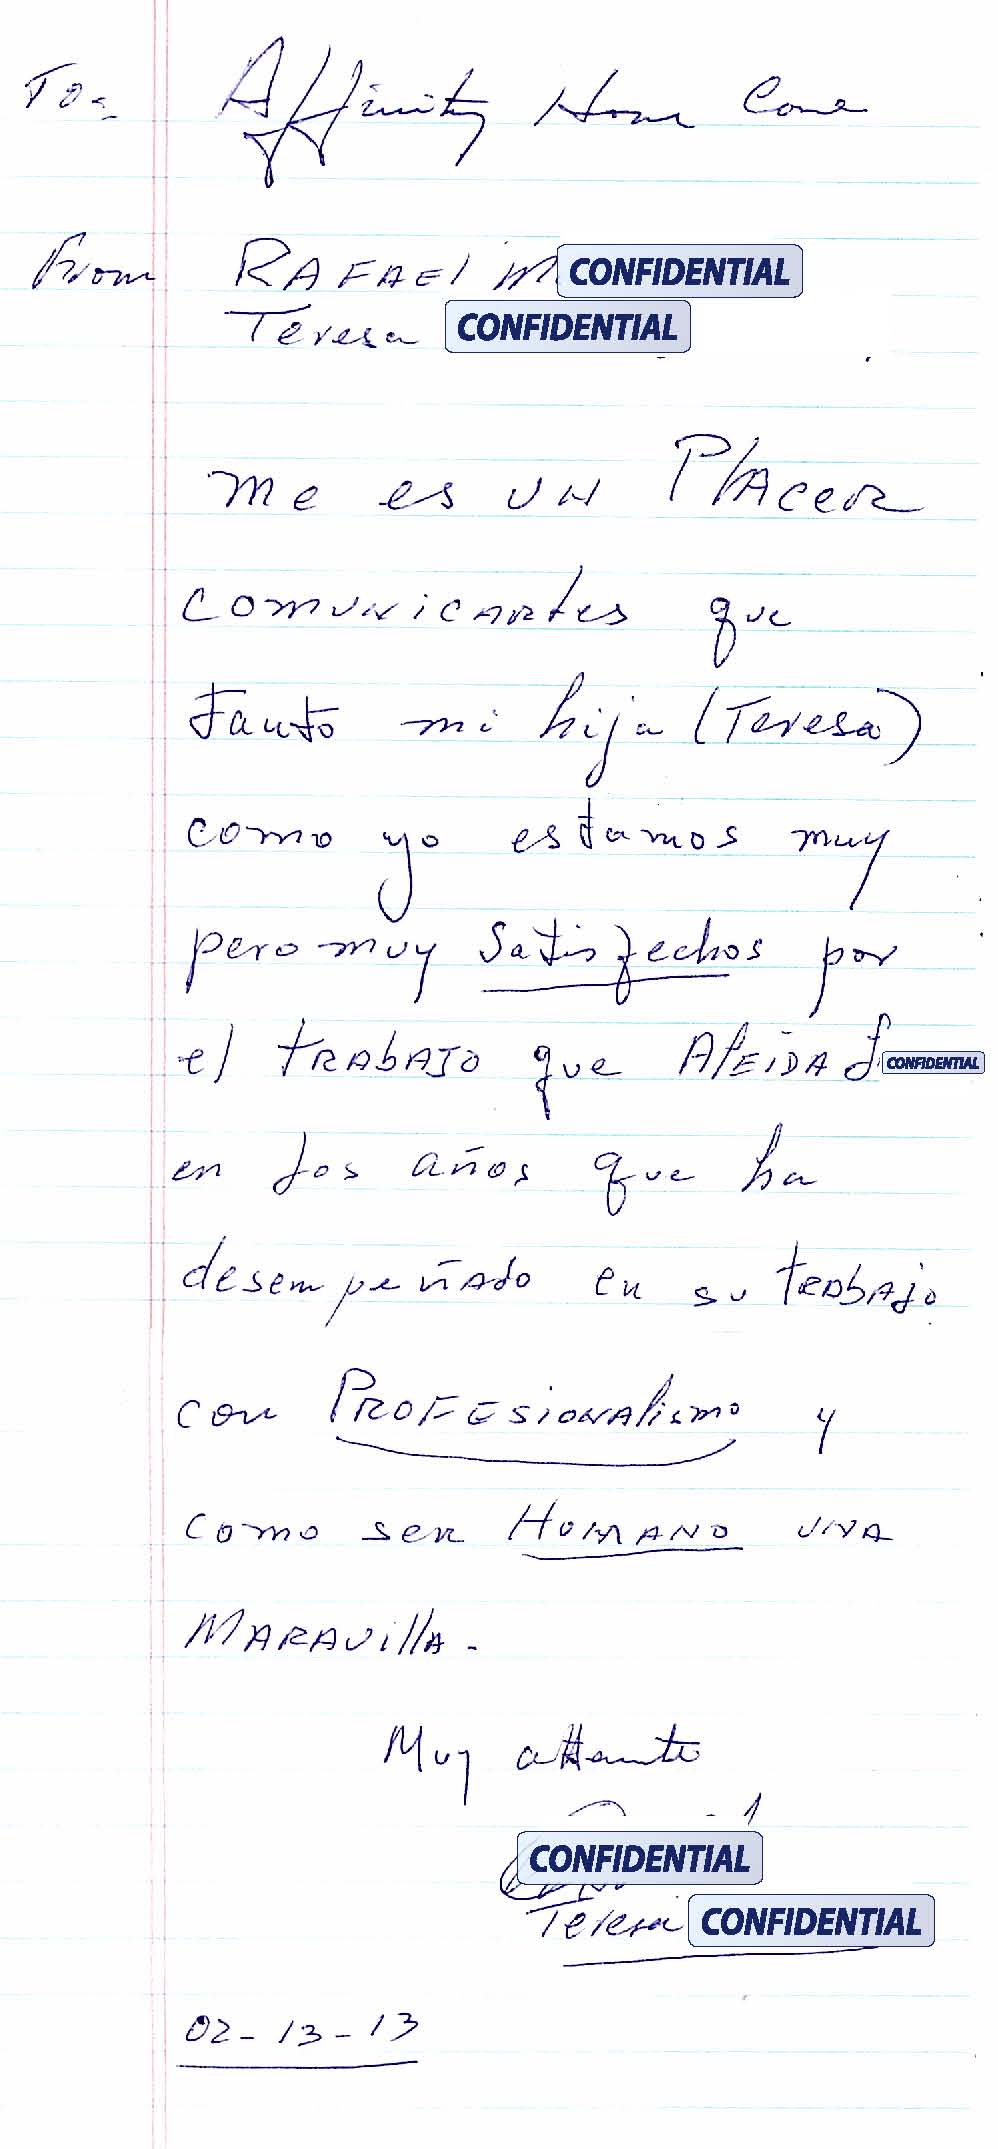 To= Affinity Home Care
From RAFAEl M CONFIDENTIAL
Teresa CONFIDENTIAL
me es un PlAcer
comunicartes que
tanto mi hija (Teresa)
como yo estamos muy
pero muy satisfechos por
el trabajo que AleidA L CONFIDENTIAL
en los años que ha
desempeñado en su trabajo
con PROFESionalismo y
como ser HUMANO una
MARAVillA.
Muy attente
CONFIDENTIAL
Teresa CONFIDENTIAL
02-13-13